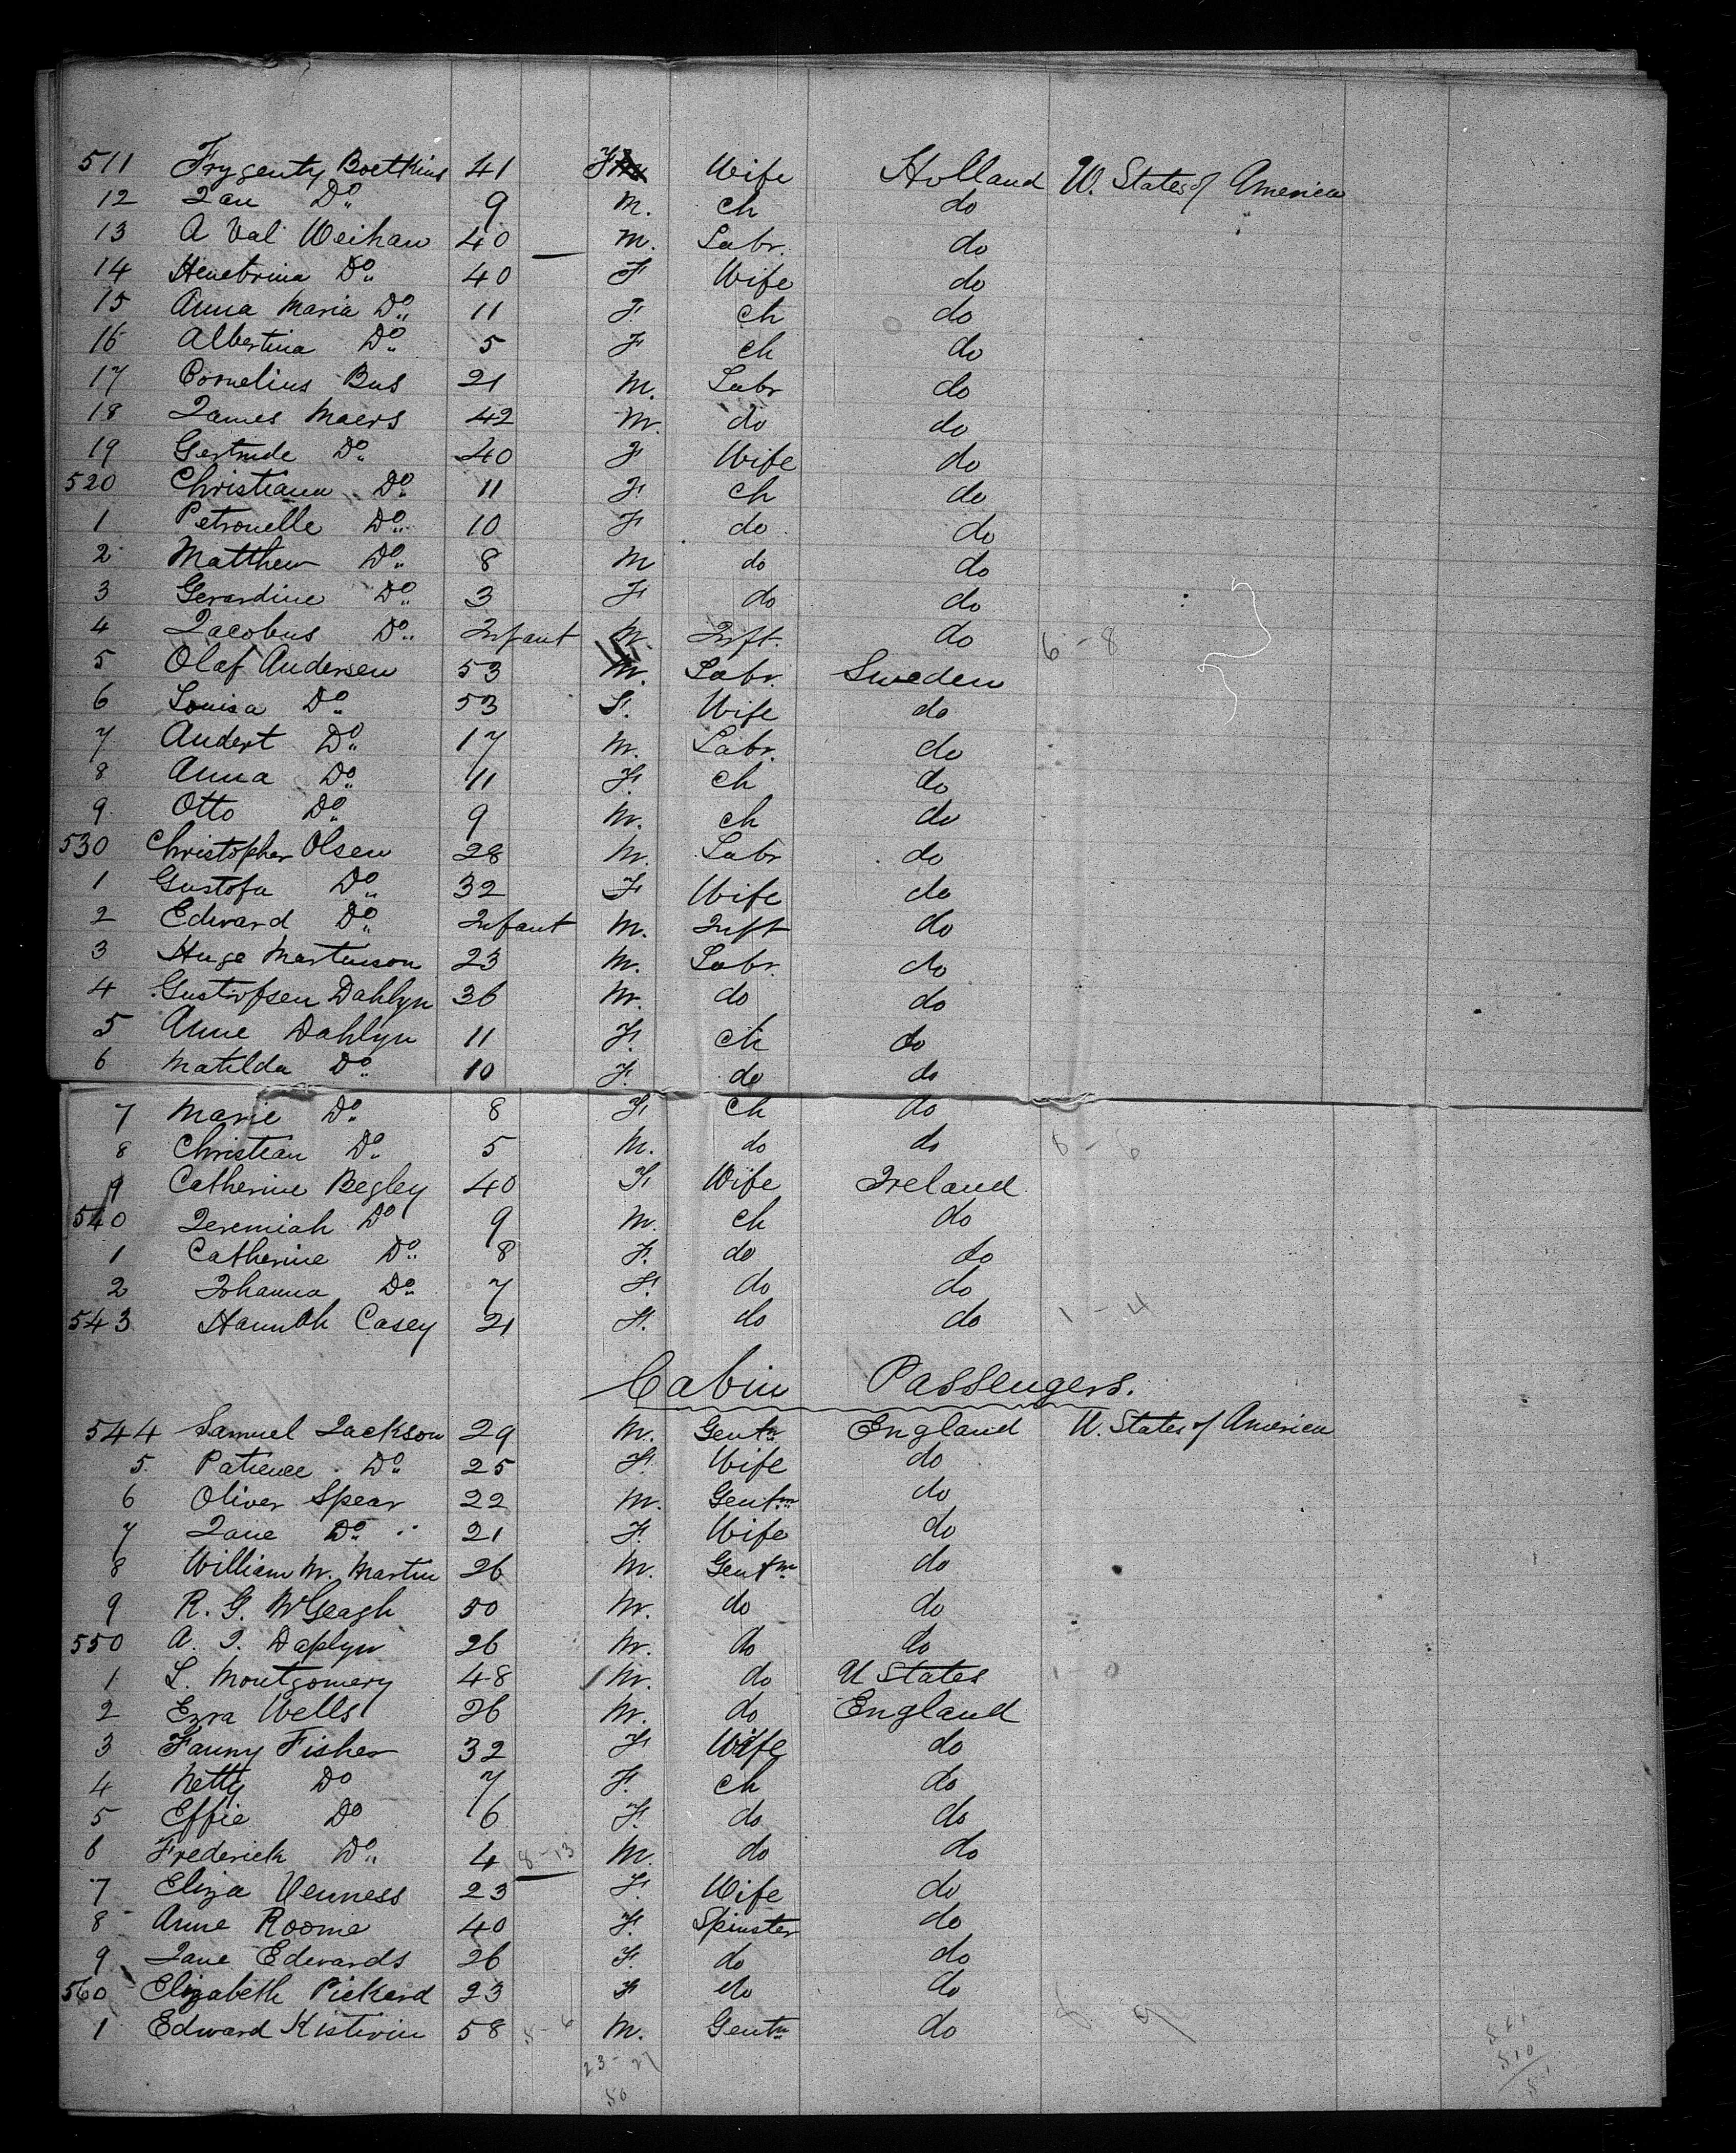 511 Frygenty Boettkins 41 F Wife Holland U. States of America
12 Jan Do 9 M. ch do
13 A Val Weihaw 40 M. Labr. do
14 Henebrina Do 40 F Wife do
15 Anna Maria Do 11 F. ch do
16 Albertina Do 5 F ch do
17 Cornelius Bus 21 M. Labr do
18 James Maers 42 M. do do
19 Gertrude Do 40 F Wife do
520 Christiana Do 11 F. ch do
1 Petronelle Do 10 F do do
2 Matthew Do 8 M do do
3 Gerardine Do 3 F do do
4 Jacobus Do Infant M. Inft. do 6 - 8
5 Olaf Andersen 53 M. Labr. Sweden
6 Louisa Do 53 F. Wife do
7 Andert Do 17 M. Labr. do
8 Anna Do 11 F. ch do
9 Otto Do 9 M. ch do
530 Christopher Olsen 28 M. Labr do
1 Gustofa Do 32 F Wife do
2 Edward Do Infant M. Inft do
3 Huge Martinson 23 M. Labr. do
4 Gustofsen Dahlyn 36 M. do do
5 Anne Dahlyn 11 F. ch do
6 Matilda Do 10 F. do do
7 Marie Do 8 F. ch do
8 Christian Do 5 M. do do 8 - 6
9 Catherine Begley 40 F. Wife Ireland
540 Jeremiah Do 9 M. ch do
1 Catherine Do 8 F. do do
2 Johanna Do 7 F. do do
543 Hannah Casey 21 F. do do 1 - 4
Cabin Passengers.
544 Samuel Jackson 29 M. Gentn England U. States of America
5 Patience Do 25 F. Wife do
6 Oliver Spear 22 M. Gentm do
7 Jane Do 21 F. Wife do
8 William M. Martin 26 M. Gentm do
9 R. G. McGeagh 50 M. do do
550 A. J. Daplyn 26 M. do do
1 L. Montgomery 48 M. do U States 1 0
2 Ezra Wells 26 M. do England
3 Fanny Fisher 32 F Wife do
4 Netty Do 7 F. ch do
5 Effie Do 6 F. do do
6 Frederick Do 4 8-13 M. do do
7 Eliza Venness 23 F. Wife do
8 Anne Roome 40 F. Spinster do
9 Jane Edwards 26 F. do do
560 Elizabeth Pickard 23 F do do
1 Edward Kistivin 58 5-6 M. Gentn do 8 9
23-27
50
561
510
51